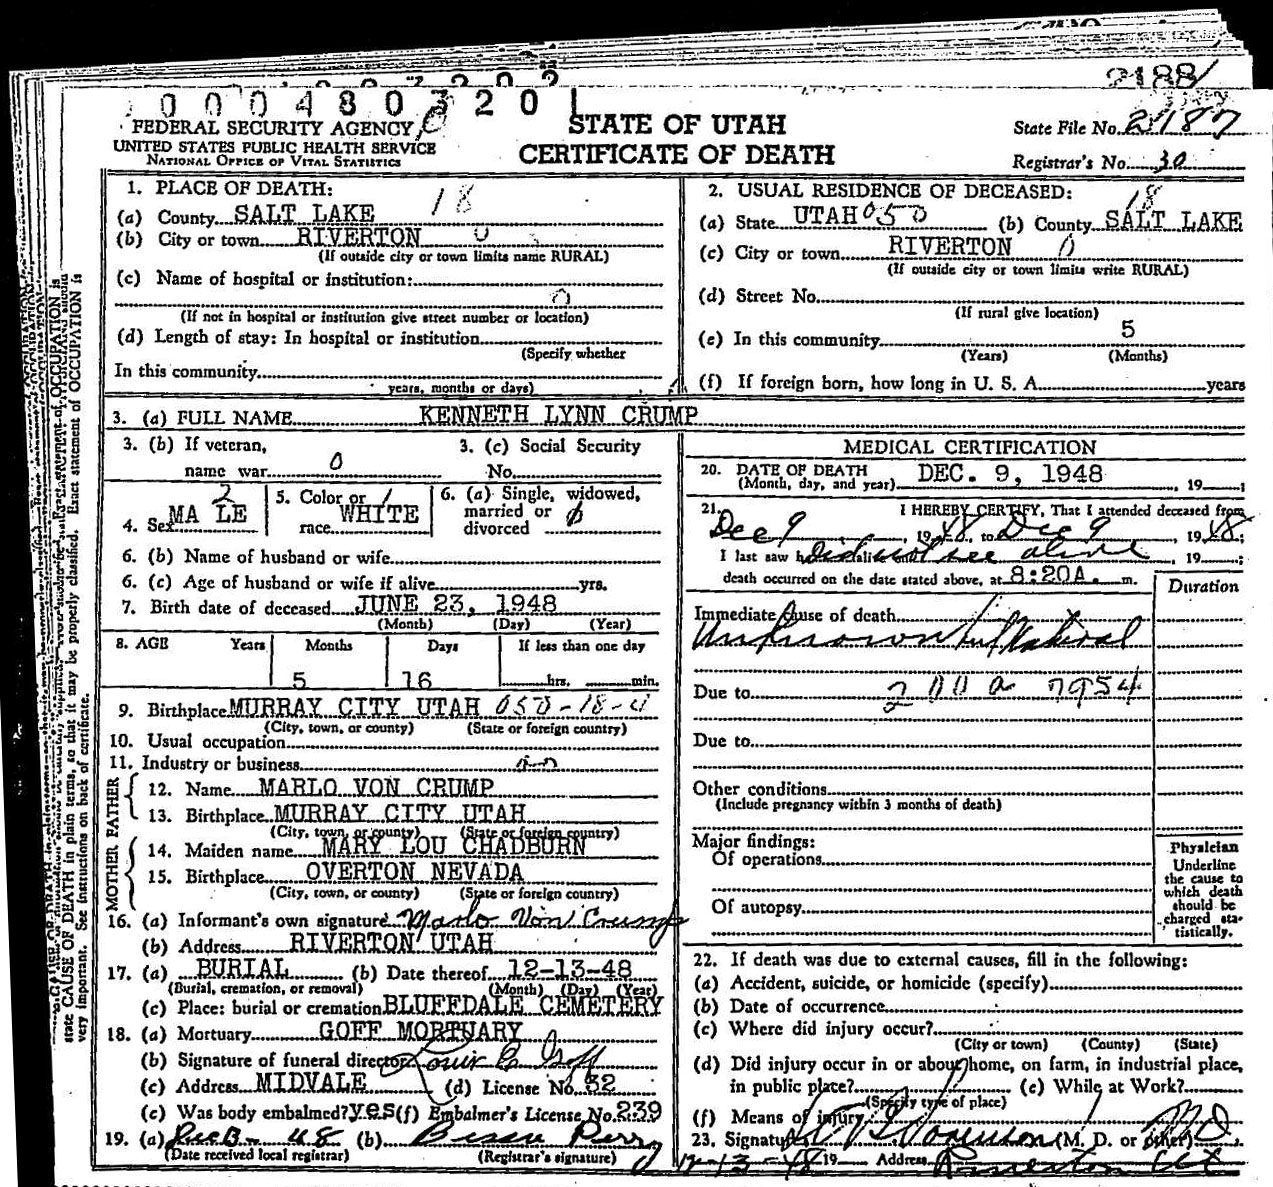 0004803201
2188
FEDERAL SECURITY AGENCY
UNITED STATES PUBLIC HEALTH SERVICE
NATIONAL OFFICE OF VITAL STATISTICS
STATE OF UTAH
CERTIFICATE OF DEATH
State File No. 2187
Registrar's No. 30
1. PLACE OF DEATH: 18
(a) County SALT LAKE
(b) City or town RIVERTON 0
(If outside city or town limits name RURAL)
(c) Name of hospital or institution:
0
(If not in hospital or institution give street number or location)
(d) Length of stay: In hospital or institution
(Specify whether
In this community
years, months or days)
2. USUAL RESIDENCE OF DECEASED: 18
(a) State UTAH 050 (b) County SALT LAKE
(c) City or town RIVERTON 0
(If outside city or town limits write RURAL)
(d) Street No.
(If rural give location)
(e) In this community 5
(Years) (Months)
(f) If foreign born, how long in U. S. A. years
3. (a) FULL NAME KENNETH LYNN CRUMP
3. (b) If veteran,
name war 0
3. (c) Social Security
No.
4. Sex MALE 2
5. Color or race WHITE 1
6. (a) Single, widowed,
married or
divorced
6. (b) Name of husband or wife
6. (c) Age of husband or wife if alive yrs.
7. Birth date of deceased JUNE 23, 1948
(Month) (Day) (Year)
8. AGE Years Months Days If less than one day
5 16 hrs. min.
9. Birthplace MURRAY CITY UTAH 050-18-4
(City, town, or county) (State or foreign country)
10. Usual occupation
11. Industry or business
FATHER
12. Name MARLO VON CRUMP
13. Birthplace MURRAY CITY UTAH
(City, town, or county) (State or foreign country)
MOTHER
14. Maiden name MARY LOU CHADBURN
15. Birthplace OVERTON NEVADA
(City, town, or county) (State or foreign country)
16. (a) Informant's own signature Marlo Von Crump
(b) Address RIVERTON UTAH
17. (a) BURIAL (b) Date thereof 12-13-48
(Burial, cremation, or removal) (Month) (Day) (Year)
(c) Place: burial or cremation BLUFFDALE CEMETERY
18. (a) Mortuary GOFF MORTUARY
(b) Signature of funeral director Louis E Goff
(c) Address MIDVALE (d) License No. 32
(e) Was body embalmed? yes (f) Embalmer's License No. 239
19. (a) 48 (b)
(Date received local registrar) (Registrar's signature)
MEDICAL CERTIFICATION
20. DATE OF DEATH
(Month, day, and year) DEC. 9, 1948, 19 ;
21. I HEREBY CERTIFY, That I attended deceased from
Dec 9, 1948, to Dec 9, 1948;
I last saw h alive on did not see alive, 19 ;
death occurred on the date stated above, at 8:20A. m.
Duration
Immediate cause of death
Unknown but Natural
Due to 200a 7954
Due to
Other conditions
(Include pregnancy within 3 months of death)
Major findings:
Of operations
Of autopsy
Physician
Underline
the cause to
which death
should be
charged sta-
tistically.
22. If death was due to external causes, fill in the following:
(a) Accident, suicide, or homicide (specify)
(b) Date of occurrence
(c) Where did injury occur?
(City or town) (County) (State)
(d) Did injury occur in or about home, on farm, in industrial place,
in public place? (e) While at Work?
(Specify type of place)
(f) Means of injury
23. Signature (M. D. or other) MD
12-13-48 19 Address Riverton Ut
state CAUSE OF DEATH in plain terms, so that it may be properly classified. Exact statement of OCCUPATION is
very important. See instructions on back of certificate.